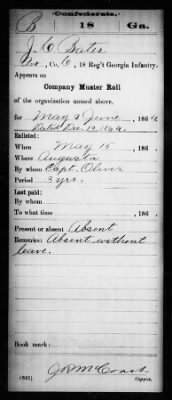 Confederate.
B 18 Ga.
J. C. Bates
Co. C, 18 Reg't Georgia Infantry.
Appears on
Company Muster Roll
of the organization named above,
for May & June, 1864.
Dated Dec. 12, 1864.
Enlisted:
When May 15, 186 .
Where Augusta
By whom Capt. Oliver
Period 3 yrs.
Last paid:
By whom
To what time , 186 .
Present or absent Absent
Remarks: Absent without
leave.
Book mark:
(642)
Copyist.